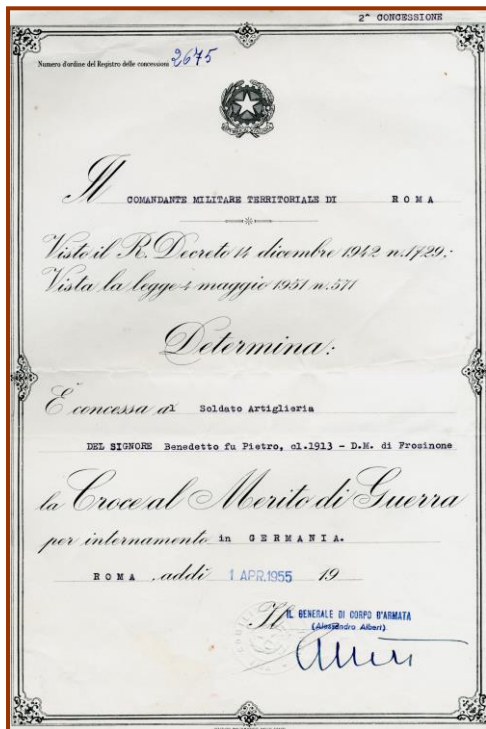 2^ CONCESSIONE
Numero d'ordine del Registro delle concessioni 2675
Il COMANDANTE MILITARE TERRITORIALE DI ROMA
Visto il R. Decreto 14 dicembre 1942 n. 1729;
Vista la legge 4 maggio 1951 n. 571
Determina:
È concessa al Soldato Artiglieria
DEL SIGNORE Benedetto fu Pietro, cl.1913 - D.M. di Frosinone
la Croce al Merito di Guerra
per internamento in GERMANIA.
ROMA, addì 1 APR.1955 19
Il IL GENERALE DI CORPO D'ARMATA
(Alessandro Albert)